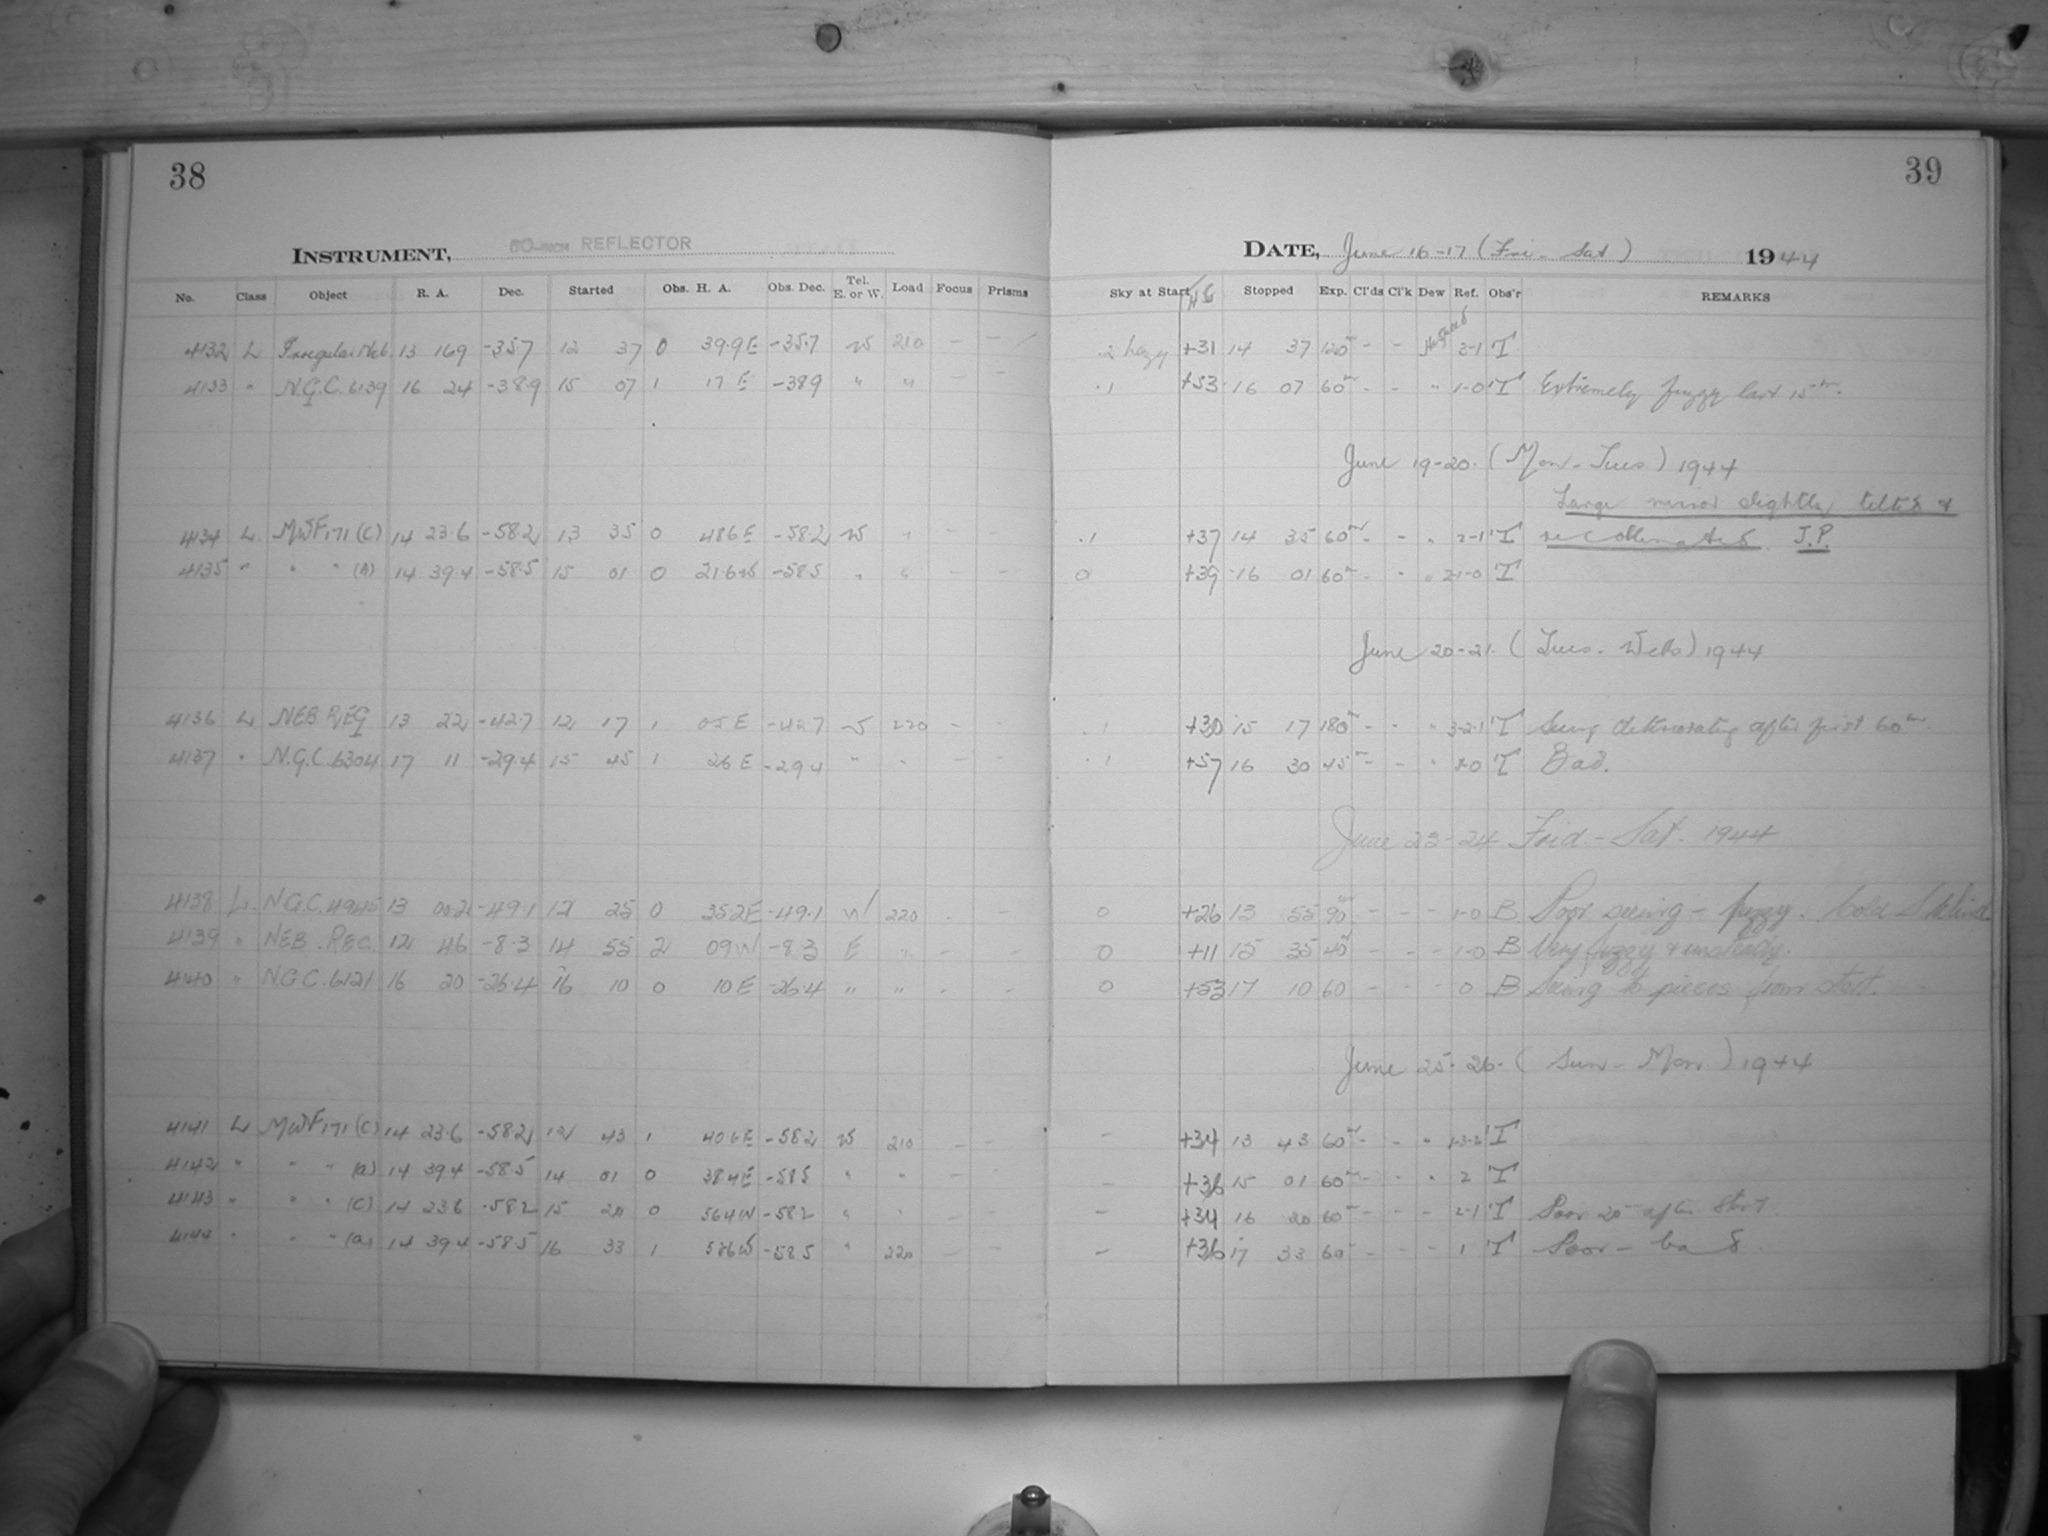 38
39
INSTRUMENT, 60-INCH REFLECTOR
DATE, June 16-17 (Fri - Sat) 1944
No. Class Object R. A. Dec. Started Obs. H. A. Obs. Dec. Tel. E. or W. Load Focus Prisms Sky at Start Stopped Exp. Cl'ds Cl'k Dew Ref. Obs'r REMARKS
4132 L Irregular Neb 13 169 -35.7 12 37 0 39.9E -35.7 W 210 - - .2 hazy +31 14 37 120m - - 3-1 T
4133 " N.G.C. 6139 16 24 -38.9 15 07 1 17 E -38.9 " " - - .1 +53 16 07 60m - - " 1-0 T Extremely fuzzy last 15m.
June 19-20. (Mon - Tues) 1944
Large mirror slightly tilted &
4134 L MWF171 (C) 14 23.6 -58.2 13 35 0 48.6E -58.2 W " - - .1 +37 14 35 60m - - " 2-1 T recollimated. J.P.
4135 " " " (A) 14 39.4 -58.5 15 01 0 21.6W -58.5 " " - 0 +39 16 01 60m - - " 2-1-0 T
June 20-21. (Tues - Weds) 1944
4136 L NEB REG 13 22 -42.7 12 17 1 05 E -42.7 W 220 - - .1 +30 15 17 180m - - " 3-2-1 T Seeing deteriorating after first 60m.
4137 " N.G.C. 6304 17 11 -29.4 15 45 1 26 E -29.4 " " - - .1 +57 16 30 45m - - " T Bad.
June 23-24 Frid - Sat. 1944
4138 L. N.G.C. 4945 13 00.2 -49.1 12 25 0 35.2E -49.1 W 220 - - 0 +26 13 55 90m - - - 1-0 B Poor seeing - fuzzy. Cold
4139 " NEB. REC. 12 46 -8.3 14 55 2 09W -8.3 E " - - 0 +11 15 35 40m - - - 1-0 B Very fuzzy & unsteady.
4140 " NGC. 6121 16 20 -26.4 16 10 0 10E -26.4 " " - - 0 +53 17 10 60 - - - 0 B Seeing to pieces from start.
June 25-26. (Sun - Mon) 1944
4141 L MWF171 (C) 14 23.6 -58.2 12 43 1 40.6E -58.2 W 210 - - - +34 13 43 60m - - " T
4142 " " " (a) 14 39.4 -58.5 14 01 0 38.4E -58.5 " " - - - +36 15 01 60m - - " 2 T
4143 " " " (C) 14 23.6 -58.2 15 20 0 56.4W -58.2 " " - - - +34 16 20 60m - - - 2-1 T Poor 20m after start
4144 " " " (a) 14 39.4 -58.5 16 33 1 -58.5 " 220 - - - +36 17 33 60m - - - 1 T Poor - bad.